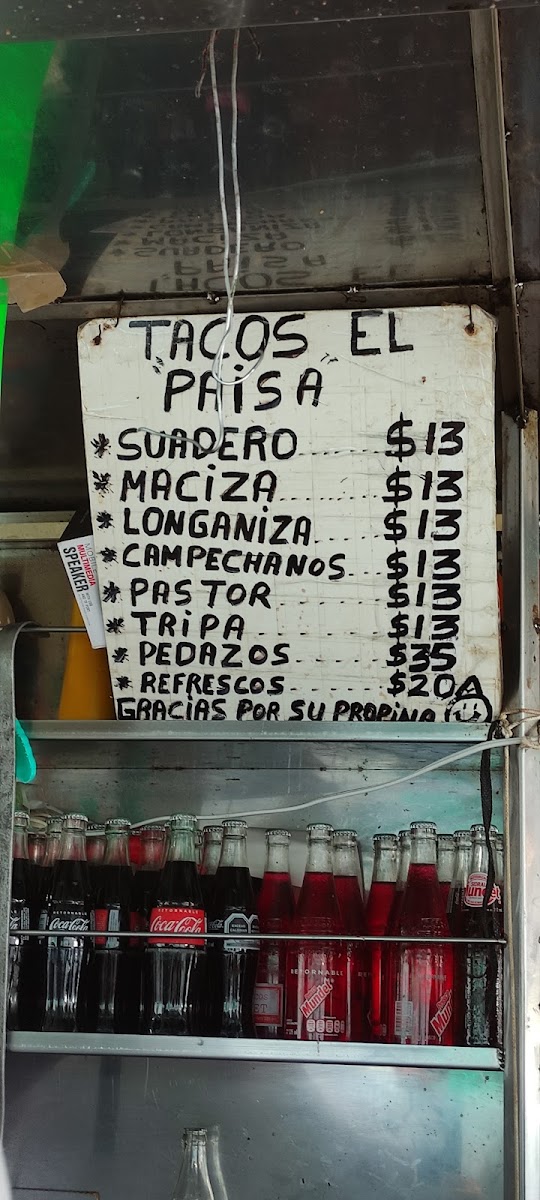 TACOS EL
"PAISA"
* SUADERO........ $13
* MACIZA......... $13
* LONGANIZA...... $13
* CAMPECHANOS.... $13
* PASTOR......... $13
* TRIPA.......... $13
* PEDAZOS........ $35
* REFRESCOS...... $20
GRACIAS POR SU PROPINA
MULTIMEDIA
SPEAKER
RETORNABLE
Coca-Cola
RETORNABLE
Coca-Cola
RETORNABLE
Mundet